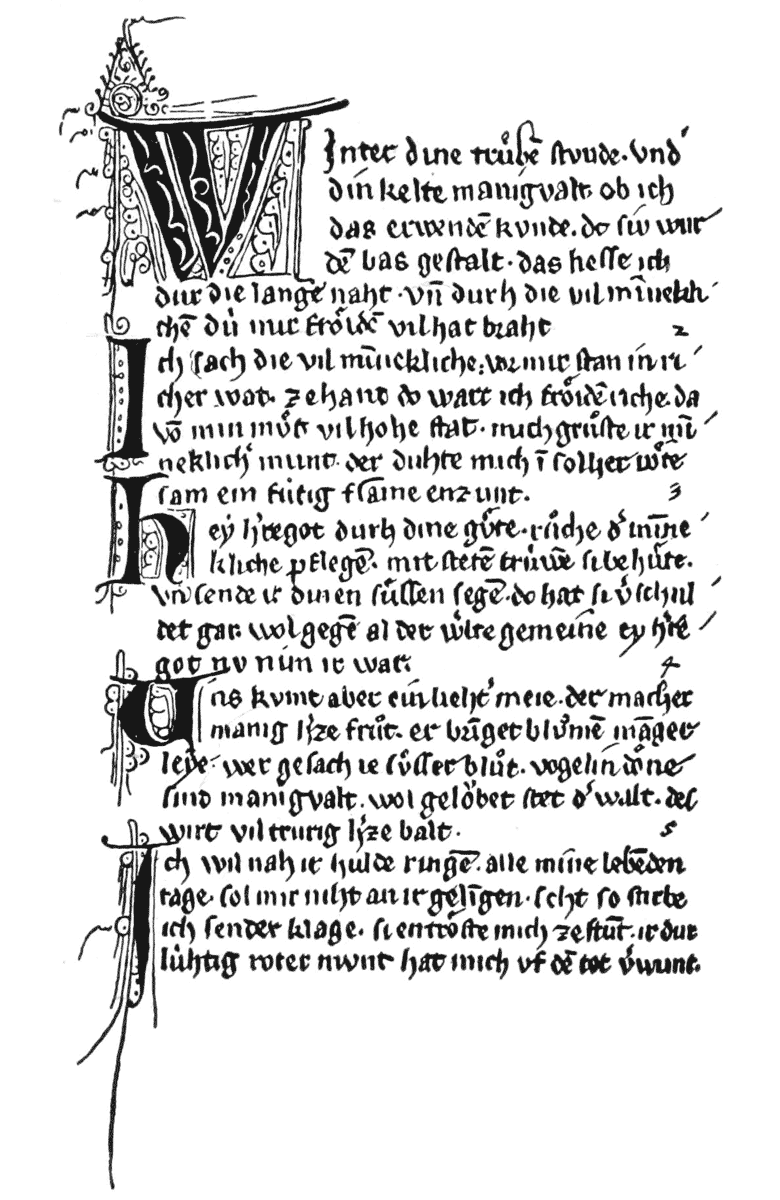 WInter dine trůbē stvnde. vnd
din kelte manigvalt. ob ich
das erwendē kvnde. do siv wur
dē bas gestalt. das hesse ich
dur die lange naht. vn̄ durh die vil mīneklı
chē du̇ mir frőidē vil hat braht 2
Ich sach die vil mı̄nekliche. vor mir stan in ri
cher wat. zehant do wart ich frőidē riche. da
vō min můt vil hohe stat. mich grůste ir mı̄
neklich' munt. der duhte mich ī solher wőte
sam ein fu̇rig flam̄e enzunt. 3
hey h're got durh dine gůte. růche d' min̄e
kliche pflegē. mit stetē tru̇wē si behu̇te.
vn̄ sende ir dinen sůssen segē. do hat si v'schul
det gar. wol gegē al der wlte gemeine ey h're
got nv nim ir war. 4
Vns kvmt aber ein lieht' meie. der machet
manig h'ze frůt. er brīget blůmē māger
leye. wer gesach ie sůsser blůt. vogelin dőne
sind manigvalt. wol gelőbet stet d' walt. des
wirt vil trurig h'ze balt. 5
Ich wil nah ir hulde ringē. alle mine lebēden
tage. sol mir niht an ir gelīgen. seht so stirbe
ich sender klage. si entrőste mich ze stūt. ir dur
lu̇htig roter mvnt hat mich vf dē tot v'wunt.